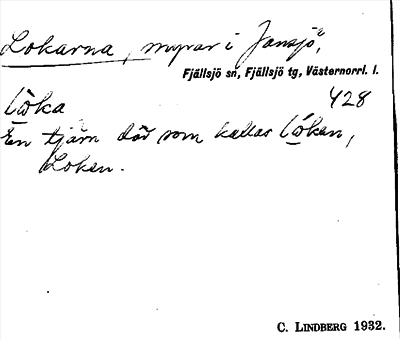 Lokarna, myrar i Jansjö,
Fjällsjö sn, Fjällsjö tg, Västernorrl. l.
428
En tjärn där som kallas
Loken.
C. LINDBERG 1932.